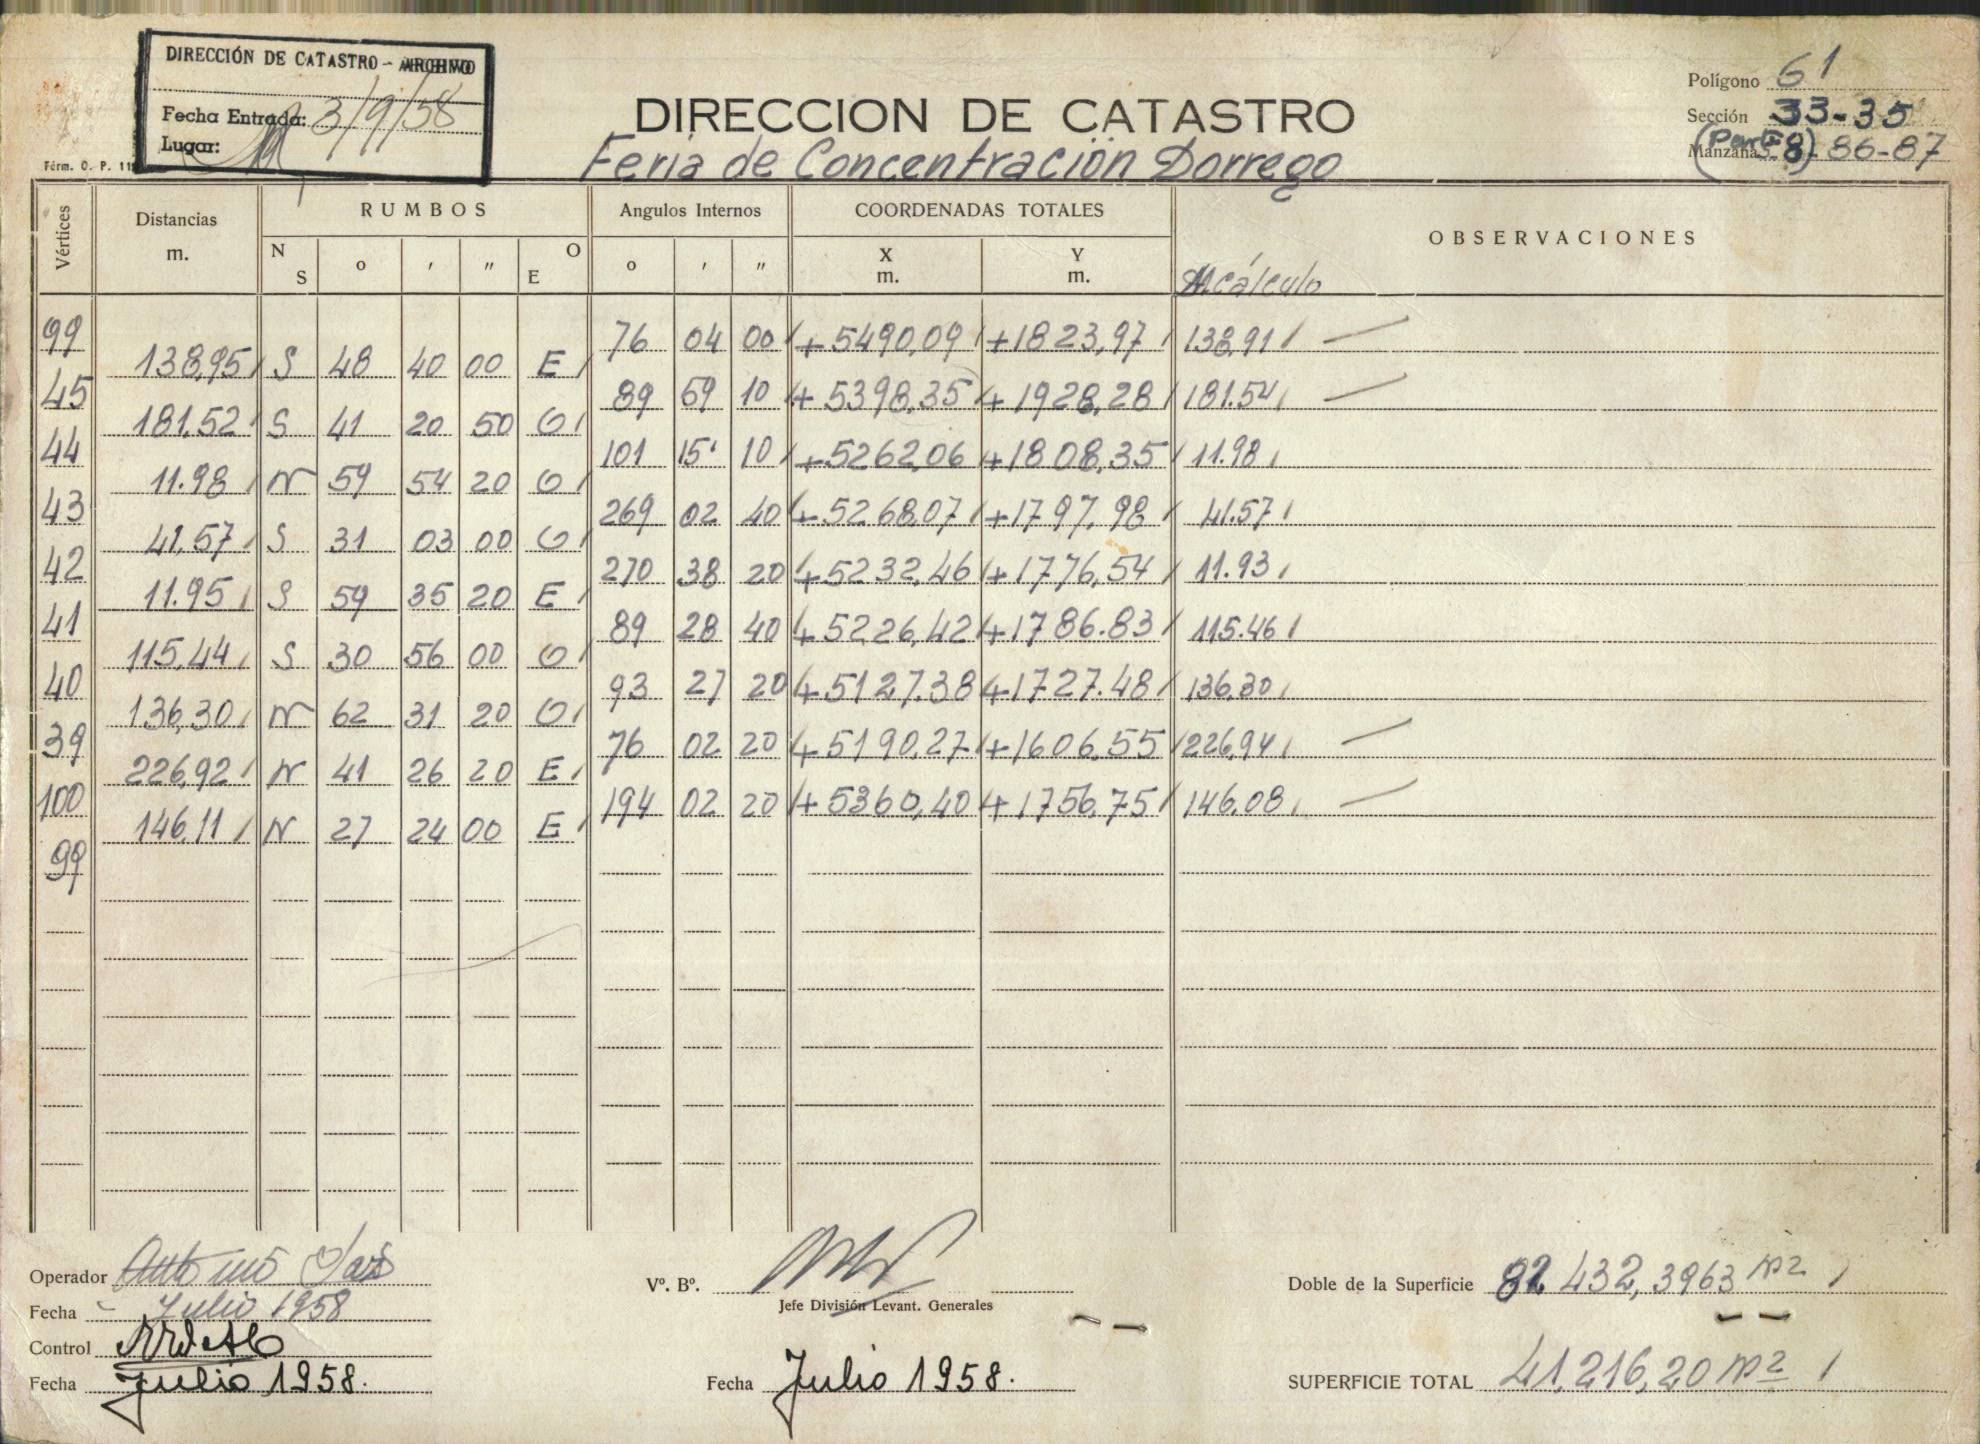 DIRECCIÓN DE CATASTRO - ARCHIVO
Fecha Entrada: 3/9/58
Lugar:
Fórm. O. P. 11
DIRECCION DE CATASTRO
Feria de Concentración Dorrego
Polígono 61
Sección 33-35
Manzana 86-87
Vértices
Distancias
m.
RUMBOS
N S ° ' " O E
Angulos Internos
° ' "
COORDENADAS TOTALES
X
m.
Y
m.
OBSERVACIONES
cálculo
99 76 04 00 +5490,09 +1823,97 138,91
138,95 S 48 40 00 E
45 89 59 10 +5398,35 +1928,28 181.54
181.52 S 41 20 50 O
44 101 15' 10 +5262,06 +1808,35 11.98
11.98 N 59 54 20 O
43 269 02 40 +5268,07 +1797,98 41.57
41,57 S 31 03 00 O
42 270 38 20 +5232,46 +1776,54 11.93
11.95 S 59 35 20 E
41 89 28 40 +5226,42 +1786.83 115.46
115,44 S 30 56 00 O
40 93 27 20 +5127.38 +1727.48 136,30
136,30 N 62 31 20 O
39 76 02 20 +5190,27 +1606,55 226,94
226,92 N 41 26 20 E
100 194 02 20 +5360,40 +1756,75 146.08
146,11 N 27 24 00 E
99
Operador
Fecha Julio 1958
Control
Fecha Julio 1958.
Vº. Bº.
Jefe División Levant. Generales
Fecha Julio 1958.
Doble de la Superficie 82 432,3963 m2
SUPERFICIE TOTAL 41.216,20 m2